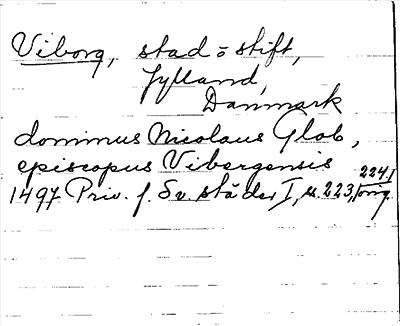 Viborg, stad o stift,
Jylland,
Danmark
dominus Nicolaus Glob,
episcopus Vibergensis
1497 Priv. f. Sv. städer I, s. 223, 224.1
orig.